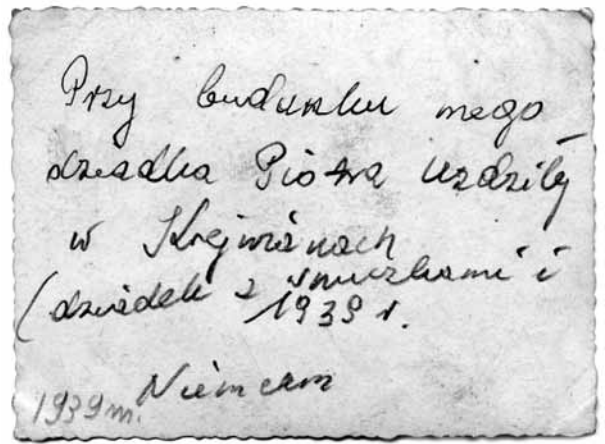 Przy budunku mego
dziadka Piotra Uzdziły
w Krejwianach
(dziadek z wnuczkami i
1939 r.
Niemcem
1939 m.